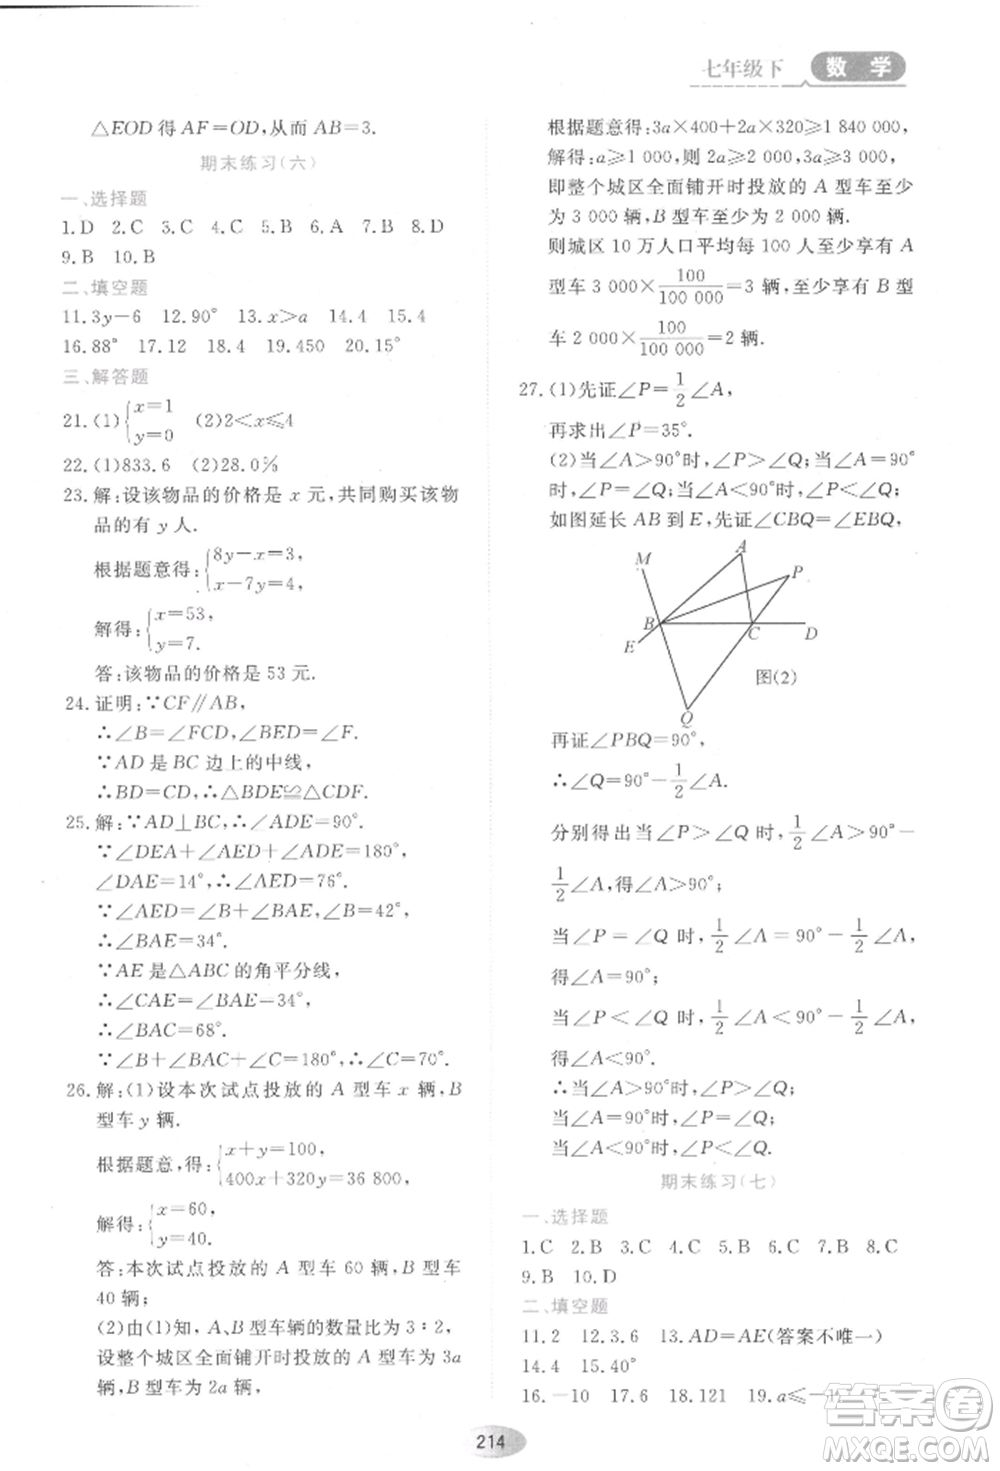 七年级下 数学
△EOD得AF=OD,从而AB=3.
期末练习(六)
一、选择题
1.D 2.C 3.B 4.C 5.B 6.A 7.C 8.D
9.B 10.B
二、填空题
11.3y-6 12.90° 13.x>a 14.4 15.4
16.88° 17.12 18.4 19.450 20.15°
三、解答题
21.(1){x=1
y=0 (2)2<x≤4
22.(1)833.6 (2)28.0%
23.解:设该物品的价格是x元,共同购买该物
品的有y人.
根据题意得:{8y-x=3,
x-7y=4,
解得:{x=53,
y=7.
答:该物品的价格是53元.
24.证明:∵CF∥AB,
∴∠B=∠FCD,∠BED=∠F.
∵AD是BC边上的中线,
∴BD=CD,∴△BDE≌△CDF.
25.解:∵AD⊥BC,∴∠ADE=90°.
∵∠DEA+∠AED+∠ADE=180°,
∠DAE=14°,∴∠AED=76°.
∵∠AED=∠B+∠BAE,∠B=42°,
∴∠BAE=34°.
∵AE是△ABC的角平分线,
∴∠CAE=∠BAE-34°,
∴∠BAC=68°.
∵∠B+∠BAC+∠C=180°,∴∠C=70°.
26.解:(1)设本次试点投放的A型车x辆,B
型车y辆.
根据题意,得{x+y=100,
400x+320y=36 800,
解得:{x=60,
y=40.
答:本次试点投放的A型车60辆,B型车
40辆;
(2)由(1)知,A、B型车辆的数量比为3:2,
设整个城区全面铺开时投放的A型车3a
辆,B型车2a辆,
根据题意得:3a×400+2a×320≥1 840 000,
解得:a≥1 000,则2a≥2 000,3a≥3 000,
即整个城区全面铺开时投放的A型车至少
为3 000辆,B型车至少为2 000辆.
则城区10万人口平均每100人至少享有A
型车3 000×100/100 000=3辆,至少享有B型
车2 000×100/100 000=2辆.
27.(1)先证∠P=1/2∠A,
再求出∠P=35°.
(2)当∠A>90°时,∠P>∠Q;当∠A=
90°时,∠P=∠Q;当∠A<90°时,∠P<∠Q;
如图延长AB到E,先证∠CBQ=∠EBQ,
M A P B C D E Q
图(2)
再证∠PBQ=90°,
∴∠Q=90°-1/2∠A.
分别得出当∠P>∠Q时,1/2∠A>90°-
1/2∠A,得∠A>90°;
当∠P=∠Q时,1/2∠A=90°-1/2∠A,
得∠A=90°;
当∠P<∠Q时,1/2∠A<90°-1/2∠A,
得∠A<90°.
∴当∠A>90°时,∠P>∠Q;
当∠A=90°时,∠P=∠Q;
当∠A<90°时,∠P<∠Q.
期末练习(七)
一、选择题
1.C 2.B 3.C 4.B 5.D 6.C 7.B 8.C
9.B 10.D
二、填空题
11.2 12.3,6 13.AD=AE(答案不唯一)
14.4 15.40°
16.-10 17.6 18.121 19.a≤-1
214
答案圈
MXQE.COM